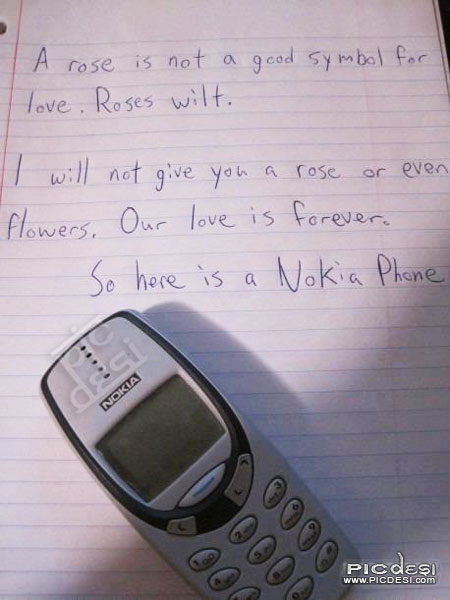 A rose is not a good symbol for
love. Roses wilt.
I will not give you a rose or even
flowers. Our love is forever.
So here is a Nokia Phone
pic
desi
NOKIA
PICDESI
www.PICDESI.com